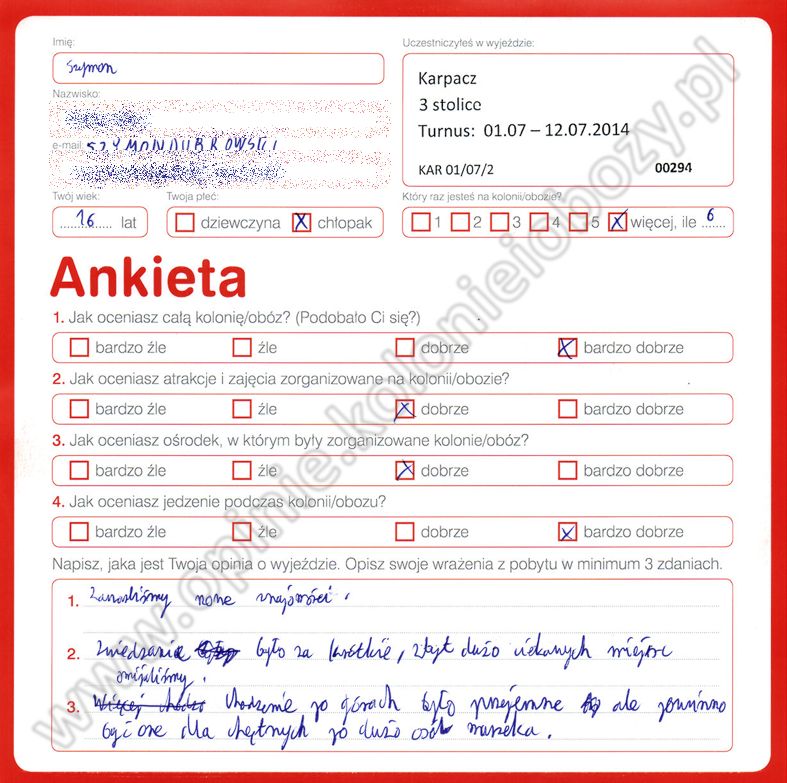 Imię:
Szymon
Uczestniczyłeś w wyjeździe:
Karpacz
3 stolice
Turnus: 01.07 – 12.07.2014
KAR 01/07/2 00294
Nazwisko:
e-mail:
Twój wiek:
16 lat
Twoja płeć:
dziewczyna X chłopak
Który raz jesteś na kolonii/obozie?
1 2 3 4 5 X więcej, ile 6
Ankieta
1. Jak oceniasz całą kolonię/obóz? (Podobało Ci się?)
bardzo źle źle dobrze X bardzo dobrze
2. Jak oceniasz atrakcje i zajęcia zorganizowane na kolonii/obozie?
bardzo źle źle X dobrze bardzo dobrze
3. Jak oceniasz ośrodek, w którym były zorganizowane kolonie/obóz?
bardzo źle źle X dobrze bardzo dobrze
4. Jak oceniasz jedzenie podczas kolonii/obozu?
bardzo źle źle dobrze X bardzo dobrze
Napisz, jaka jest Twoja opinia o wyjeździe. Opisz swoje wrażenia z pobytu w minimum 3 zdaniach.
1. znajomości.
2. Zwiedzanie było za krótkie, zbyt dużo ciekawych miejsc
omijaliśmy.
3. Chodzenie po górach było przyjemne ale powinno
być one dla chętnych bo dużo osób narzeka.
www.opinie.kolonieiobozy.pl